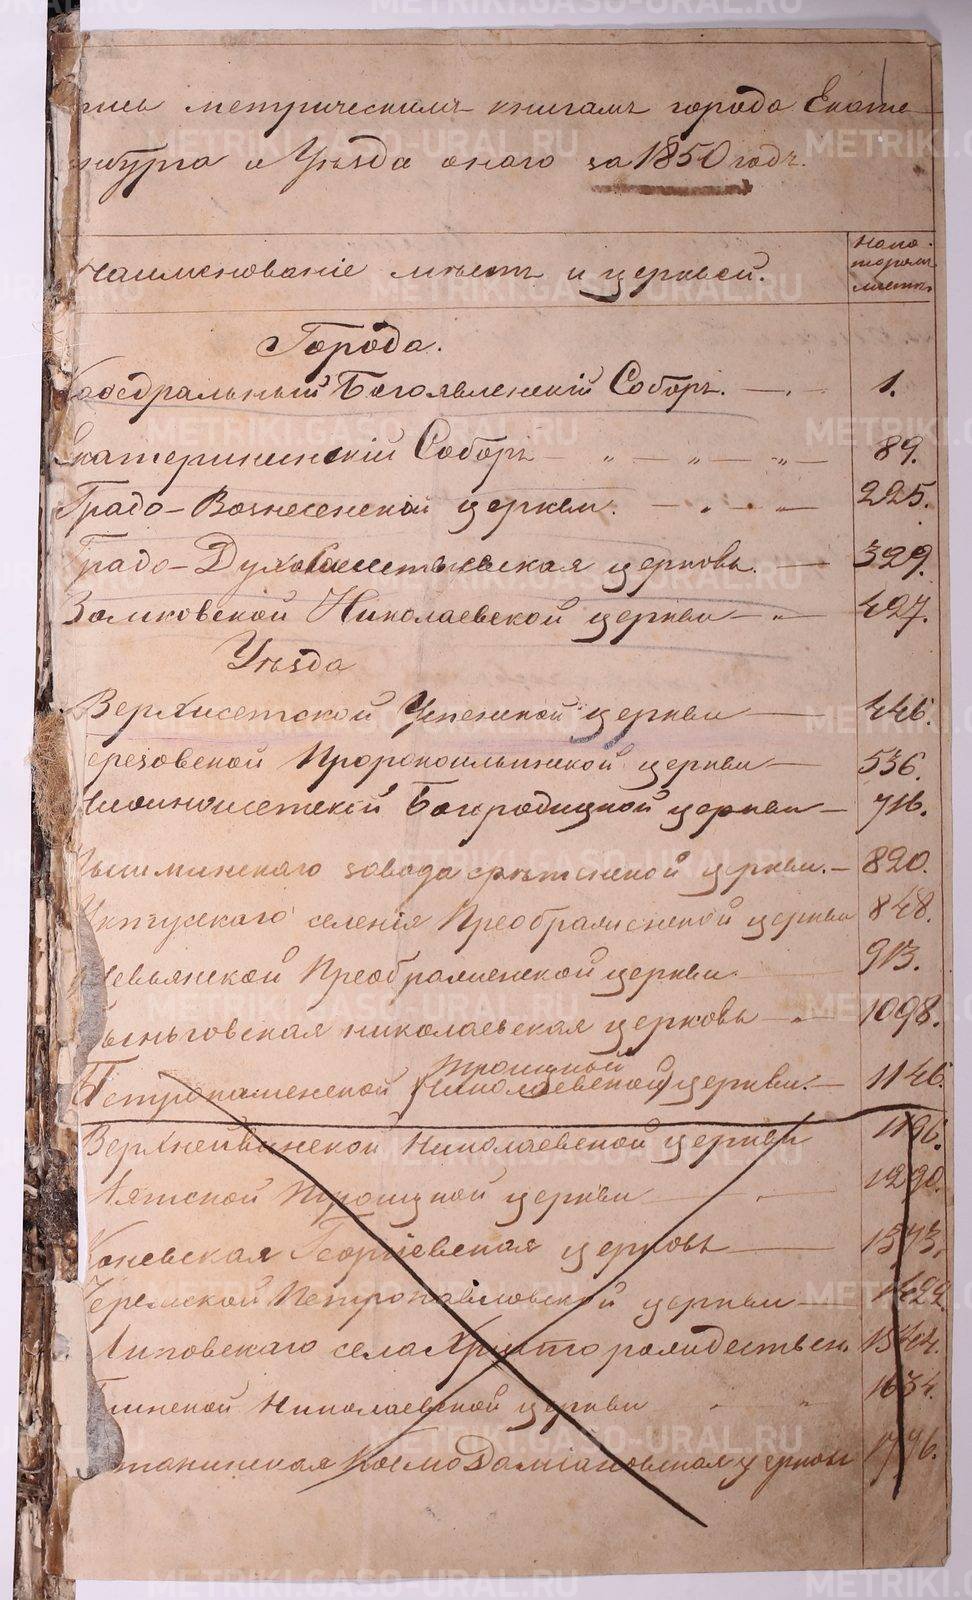 пись метрическимъ книгамъ города Екате
нбурга и Уѣзда онаго за 1850 годъ.
Наименованіе мѣстъ и церквей.
На ко-
торомъ
листѣ
Города.
Каѳедральный Богоявленскій Соборъ. — 1.
Екатерининскій Соборъ — „ — „ — „ — 89.
Градо-Вознесенской церкви. — „ — „ — 225.
Градо-Духосошественская церковь. — 329.
Замковской Николаевской церкви — „ — 427.
Уѣзда
Верхисетской Успенской церкви — 446.
Березовской Пророкоильинской церкви — 536.
Нижнеисетской Богородицкой церкви — 716.
Пышминскаго завода срѣтенской церкви. — 820.
Уктусскаго селенія Преображенской церкви 848.
Невьянской Преображенской церкви 913.
Быньговская николаевская церковь — „ — 1098.
троицкой
Петрокаменской (Николаевской) церкви. — 1146.
Верхнейвинской Николаевской церкви 1196.
Аятской Троицкой церкви 1290.
Коневская Георгіевская церковь — 1373.
Черемской Петропавловской церкви — 1422
Липовскаго села Христорождествен. 1544.
Глинской Николаевской церкви 1634.
таникинская КосмоДаміановская церковь 1796.
METRIKI.GASO-URAL.RU